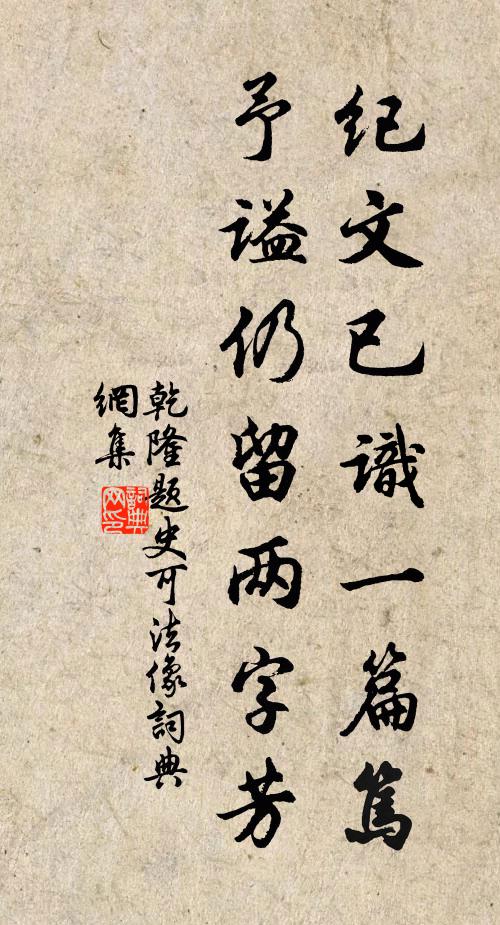 纪文已識一篇篤
予谥仍留两字芳
乾隆题史可法像詞典
網集
詞典
网印